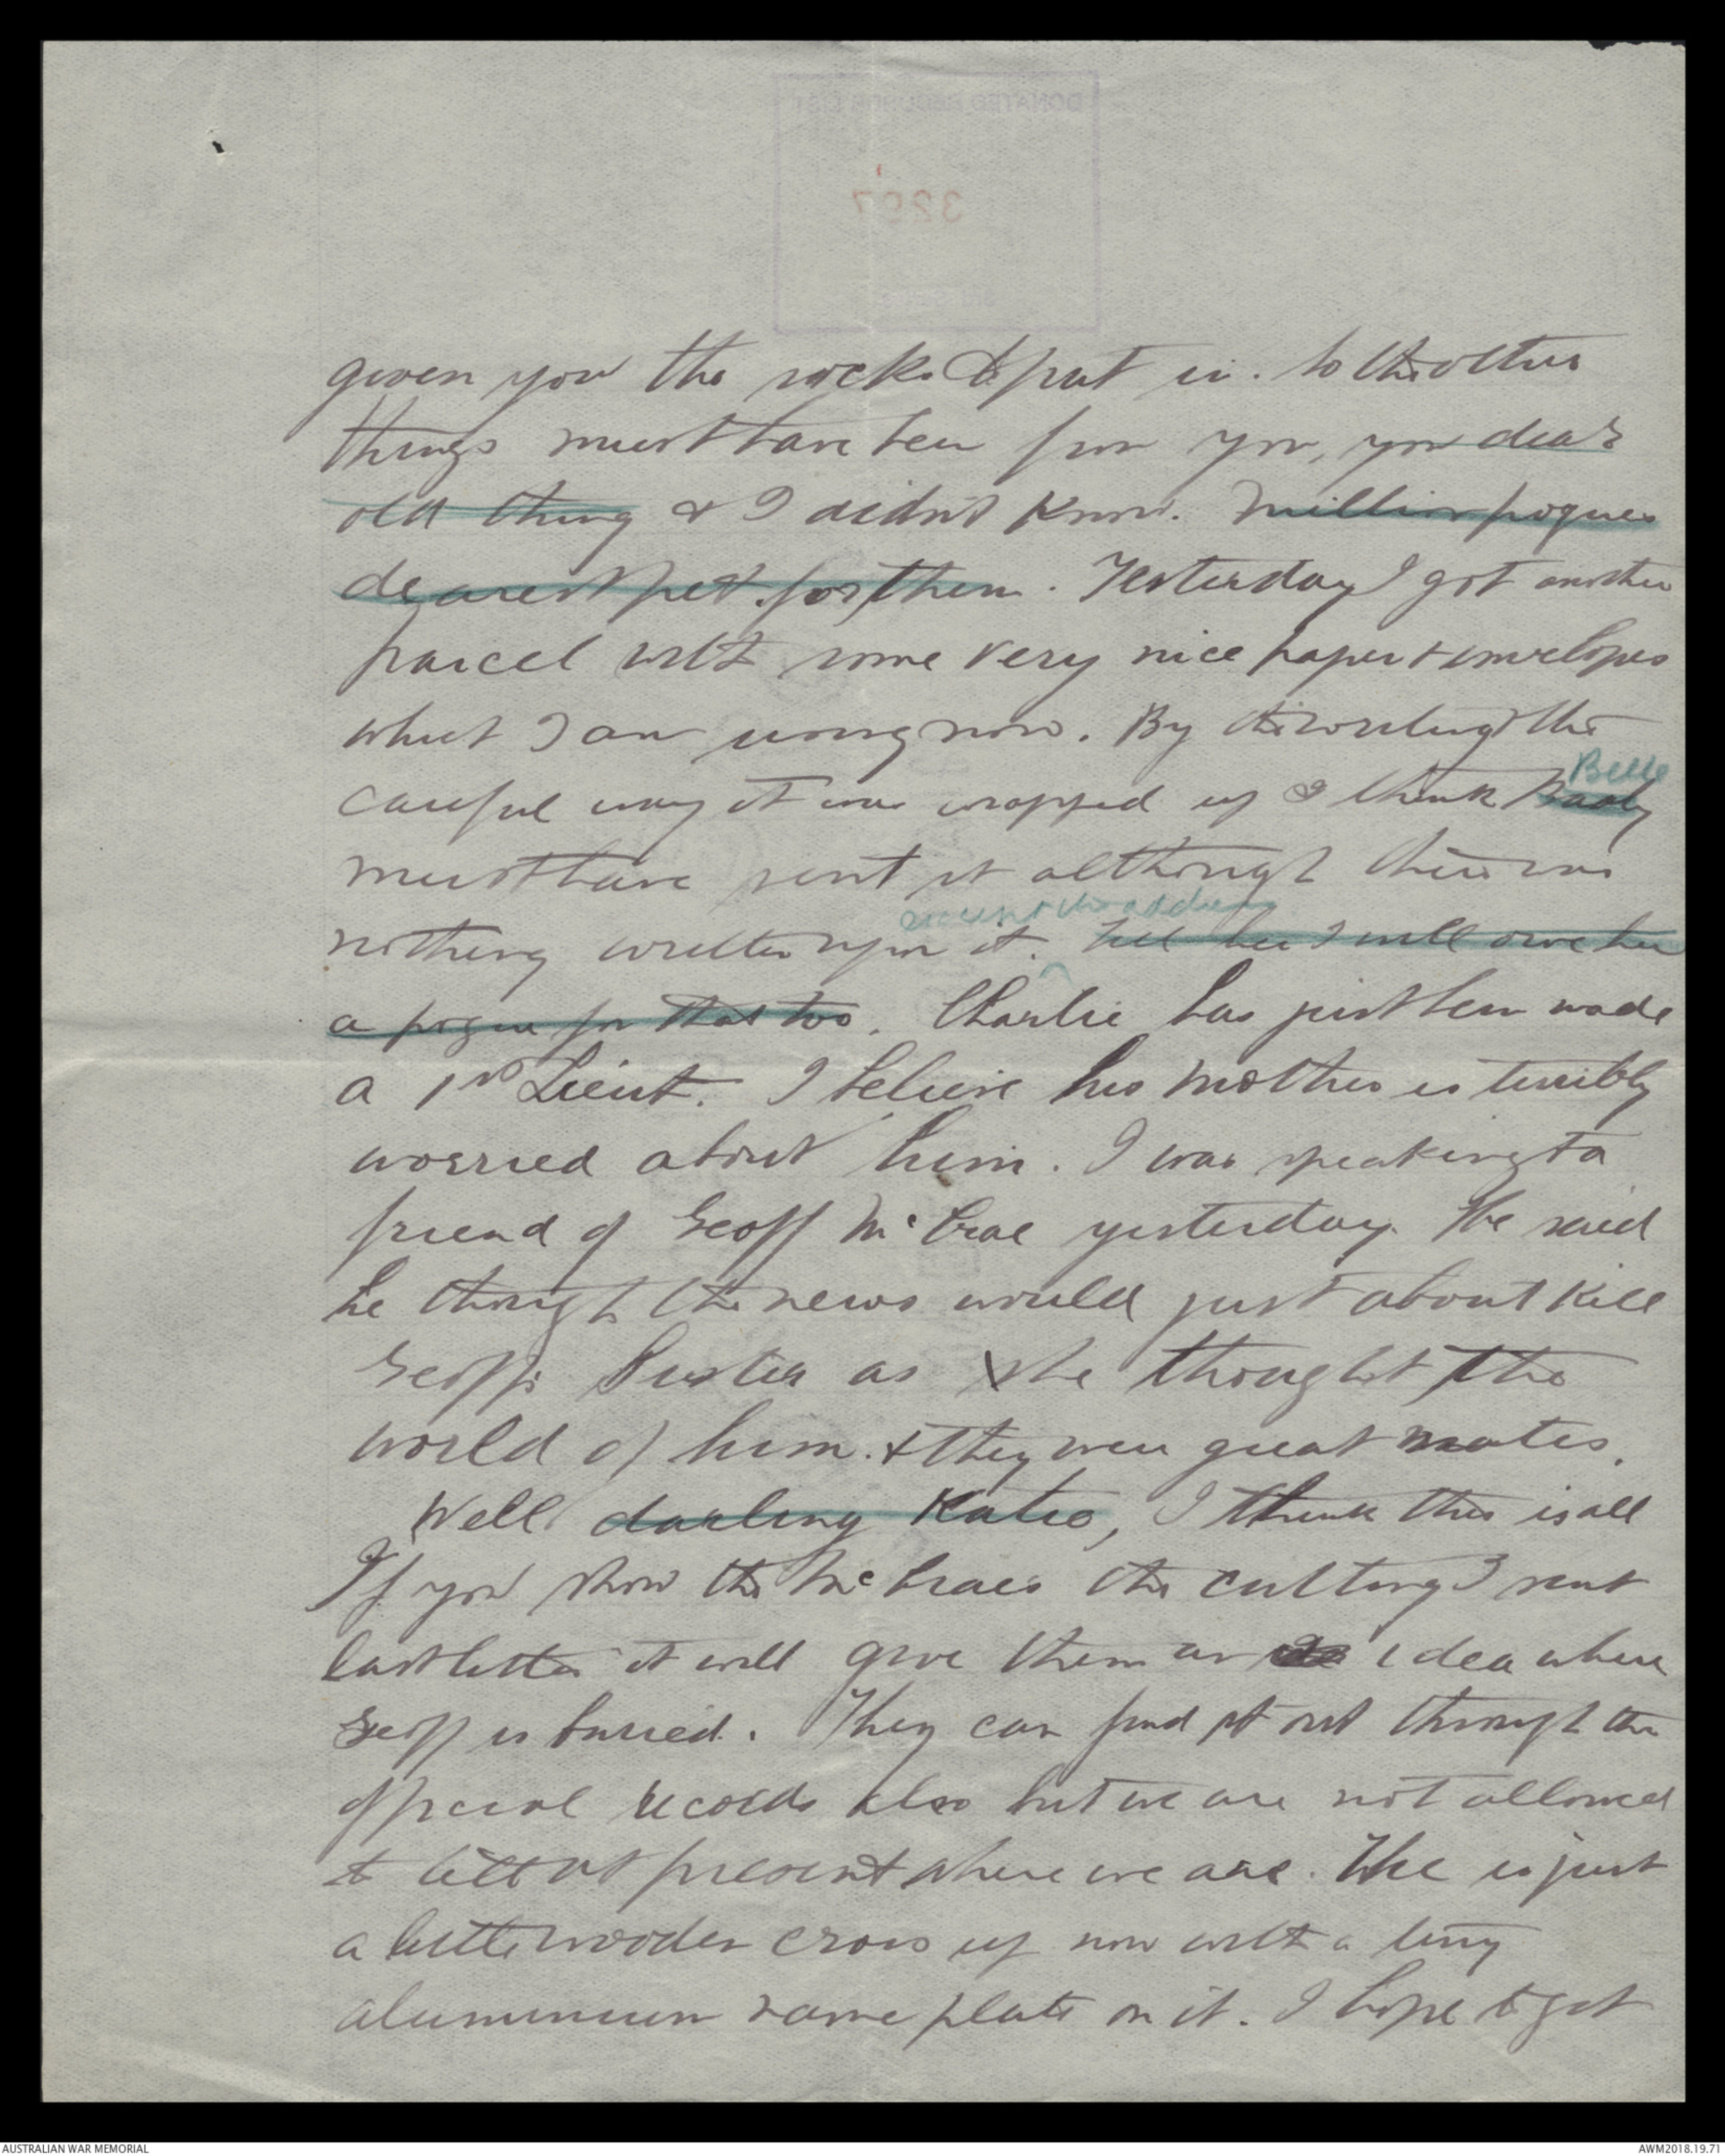 given you the socks to put in. So the other
things must have been from you, you dear
old thing & I didn't know. Million pogues
dearest pet for them. Yesterday I got another
parcel with some very nice paper & envelopes
what I am using now. By the writing & the
careful way it was wrapped up I think Baaly
Belle
must have sent it although there was
except the address
nothing written upon it. Tell her I will owe her
a pogue for that too. Charlie has just been made
a 1st Lieut. I believe his mother is terribly
worried about him. I was speaking to a
friend of Geoff McCrae yesterday. He said
he thought the news would just about kill
Geoff's Sister as she thought the
world of him & they were great mates.
Well darling Katie, I think this is all
If you show the McCraes the cutting I sent
last letter it will give them an idea where
Geoff is buried. They can find it out through the
official records also but we are not allowed
to tell at present where we are. There is just
a little wooden cross up now with a tiny
aluminium name plate on it. I hope to get
DONATED RECORDS LIST
3297
AUSTRALIAN WAR MEMORIAL
AWM2018.19.71